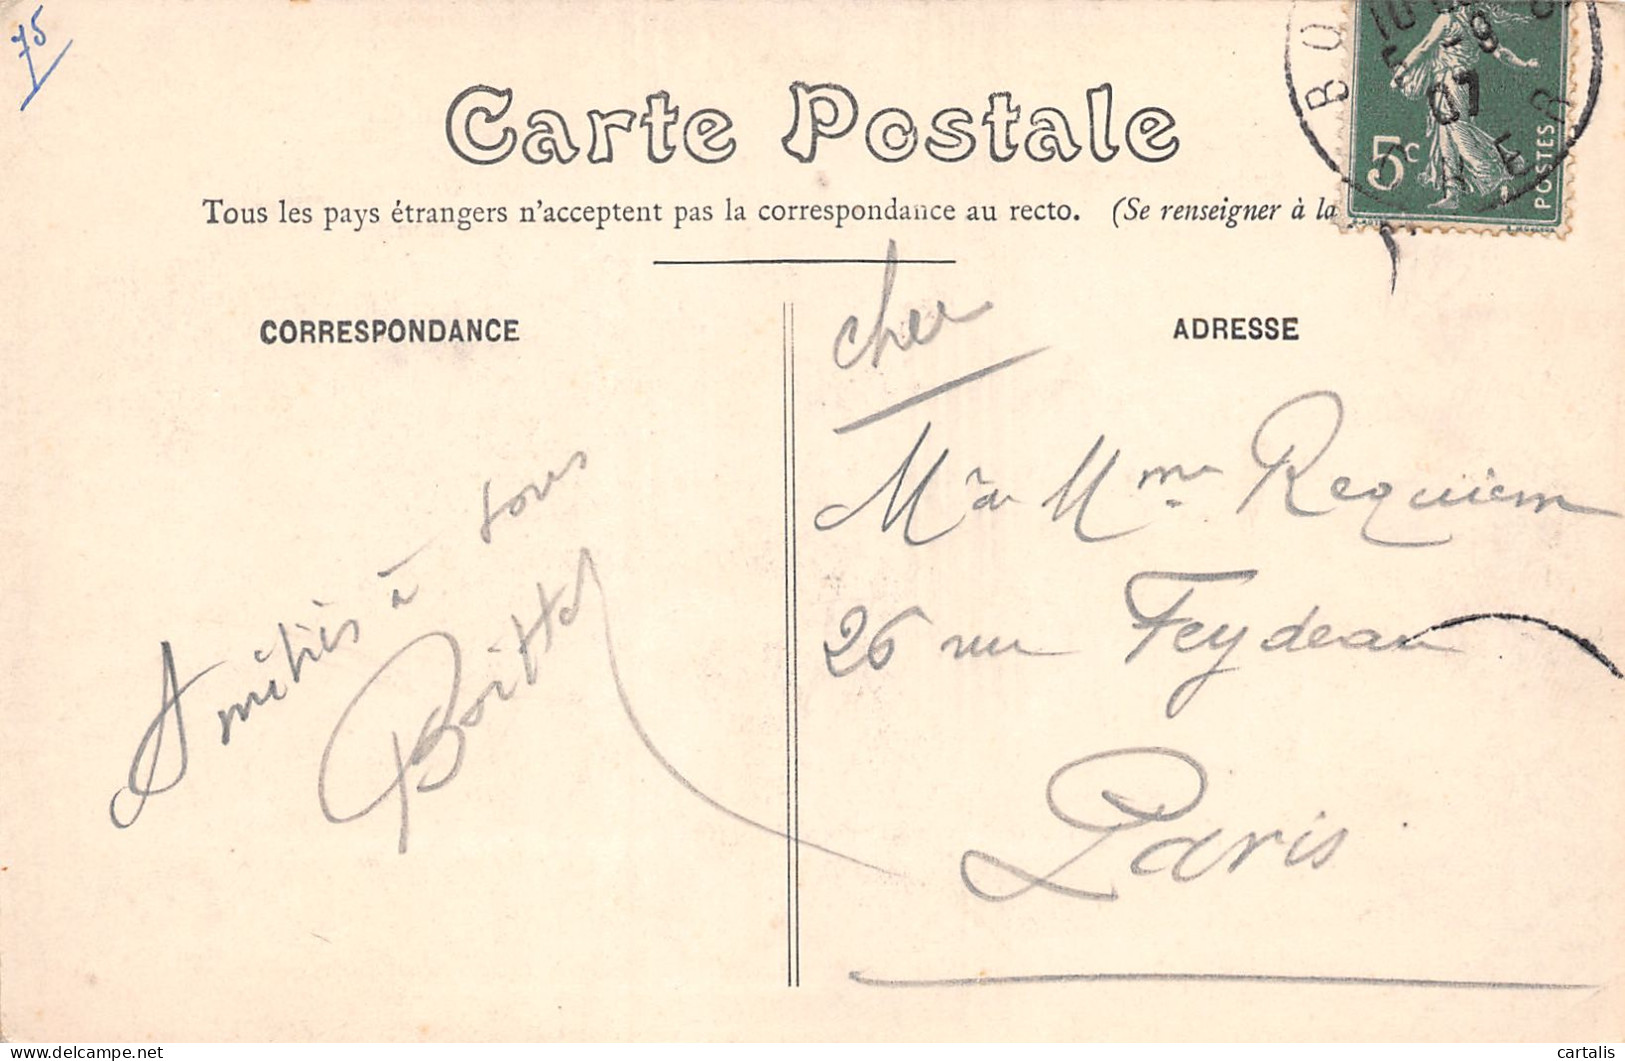 75
Carte Postale
Tous les pays étrangers n'acceptent pas la correspondance au recto. (Se renseigner à la
5c
POSTES
07
CORRESPONDANCE
ADRESSE
cher
Mr & Mme Requiem
26 rue Feydeau
Paris
Amitiés à tous
Boittel
cartalis
delcampe.net